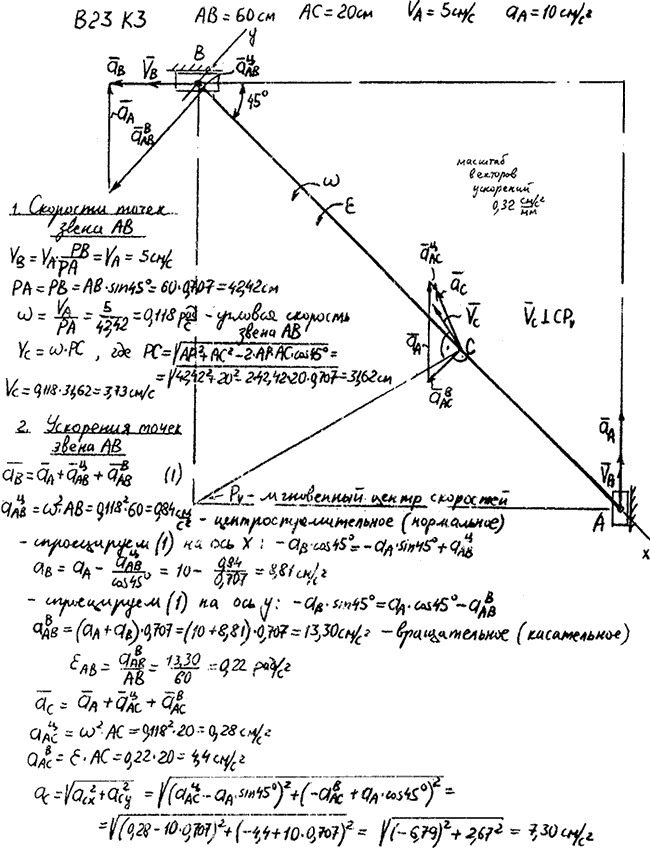 В23 К3 AB=60см AC=20см V_A=5см/с a_A=10см/с²
y
B
ā_B V̄_B ā^ц_AB
45°
ā_A
ā^в_AB
масштаб
векторов
ускорений
0,32 см/с²/мм
ω
ε
1. Скорости точек
звена АВ
V_B = V_A·PB/PA = V_A = 5см/с
PA = PB = AB·sin45° = 60·0,707 = 42,42см
ω = V_A/PA = 5/42,42 = 0,118 рад/с - угловая скорость
звена АВ
V_C = ω·PC, где PC = √(AP²+AC²-2·AP·AC·cos45°) =
= √(42,42²+20²-2·42,42·20·0,707) = 31,62см
V_C = 0,118·31,62 = 3,73 см/с
ā^ц_AC ā_C
V̄_C
V̄_C ⊥ CP_V
ā_A C
ā^в_AC
ā_A
V̄_A
A
x
2. Ускорения точек
звена АВ
ā_B = ā_A + ā^ц_AB + ā^в_AB (1)
P_V - мгновенный центр скоростей
a^ц_AB = ω²·AB = 0,118²·60 = 0,84 см/с² - центростремительное (нормальное)
- спроецируем (1) на ось X: -a_B·cos45° = -a_A·sin45° + a^ц_AB
a_B = a_A - a^ц_AB/cos45° = 10 - 0,84/0,707 = 8,81 см/с²
- спроецируем (1) на ось y: -a_B·sin45° = a_A·cos45° - a^в_AB
a^в_AB = (a_A+a_B)·0,707 = (10+8,81)·0,707 = 13,30см/с² - вращательное (касательное)
ε_AB = a^в_AB/AB = 13,30/60 = 0,22 рад/с²
ā_C = ā_A + ā^ц_AC + ā^в_AC
a^ц_AC = ω²·AC = 0,118²·20 = 0,28 см/с²
a^в_AC = ε·AC = 0,22·20 = 4,4 см/с²
a_C = √(a²_Cx + a²_Cy) = √((a^ц_AC - a_A·sin45°)² + (-a^в_AC + a_A·cos45°)²) =
= √((0,28-10·0,707)² + (-4,4+10·0,707)²) = √((-6,79)² + 2,67²) = 7,30 см/с²